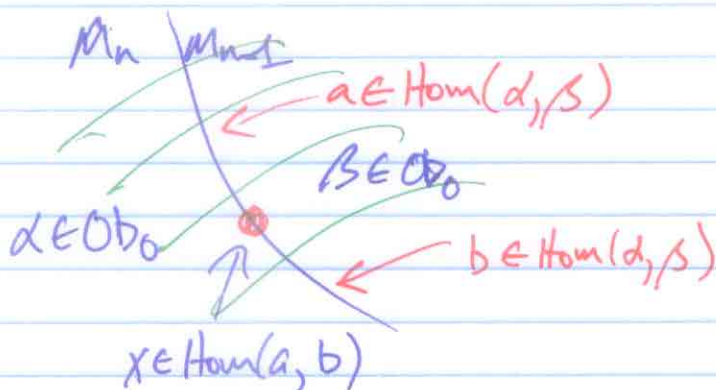 Mn Mn-1
a ∈ Hom(α, β)
β ∈ Ob₀
α ∈ Ob₀
b ∈ Hom(α, β)
x ∈ Hom(a, b)